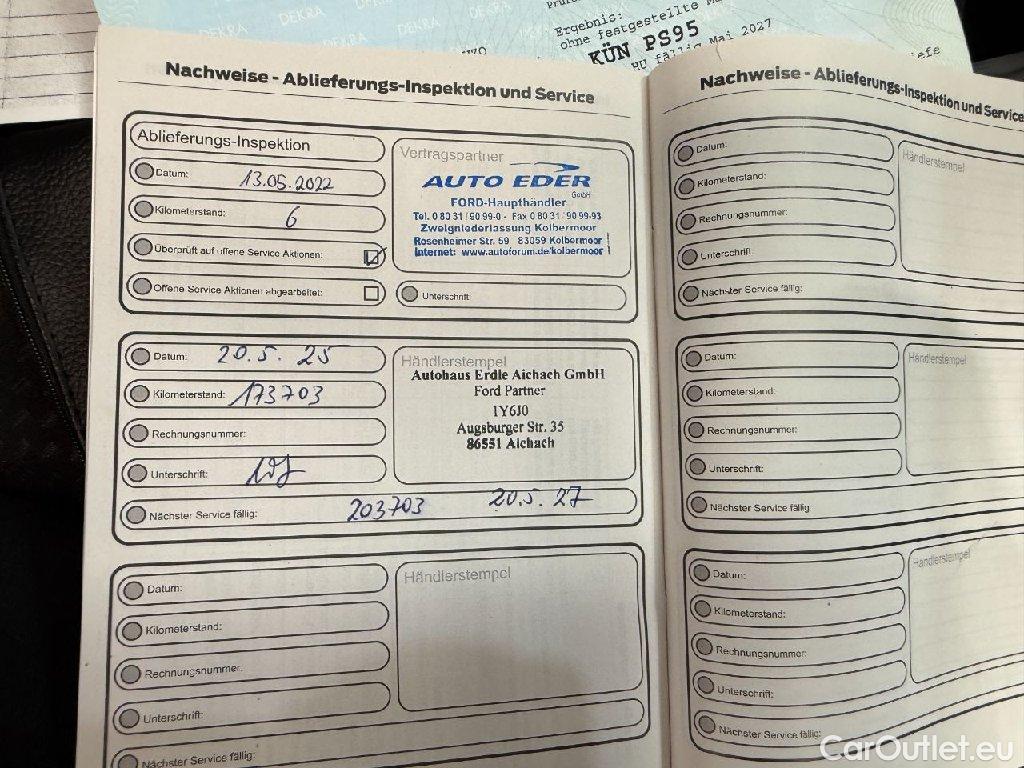 DEKRA
DEKRA
DEKRA
DEKRA
Ergebnis:
ohne festgestellte
KÜN PS95
HU fällig Mai 2027
Nachweise - Ablieferungs-Inspektion und Service
Ablieferungs-Inspektion
Datum: 13.05.2022
Kilometerstand: 6
Überprüft auf offene Service Aktionen:
Offene Service Aktionen abgearbeitet:
Vertragspartner
AUTO EDER
GmbH
FORD-Haupthändler
Tel. 0 80 31 / 90 99-0 - Fax 0 80 31 / 90 99-93
Zweigniederlassung Kolbermoor
Rosenheimer Str. 59 83059 Kolbermoor
Internet: www.autoforum.de/kolbermoor
Unterschrift:
Datum: 20.5. 25
Kilometerstand: 173703
Rechnungsnummer:
Unterschrift:
Nächster Service fällig: 203703 20.5. 27
Händlerstempel
Autohaus Erdle Aichach GmbH
Ford Partner
1Y6J0
Augsburger Str. 35
86551 Aichach
Datum:
Kilometerstand:
Rechnungsnummer:
Unterschrift:
Nächster Service fällig:
Händlerstempel
Nachweise - Ablieferungs-Inspektion und Service
Datum:
Kilometerstand:
Rechnungsnummer:
Unterschrift:
Nächster Service fällig:
Händlerstempel
Datum:
Kilometerstand:
Rechnungsnummer:
Unterschrift:
Nächster Service fällig:
Händlerstempel
Datum:
Kilometerstand:
Rechnungsnummer:
Unterschrift:
Nächster Service fällig:
Händlerstempel
CarOutlet.eu